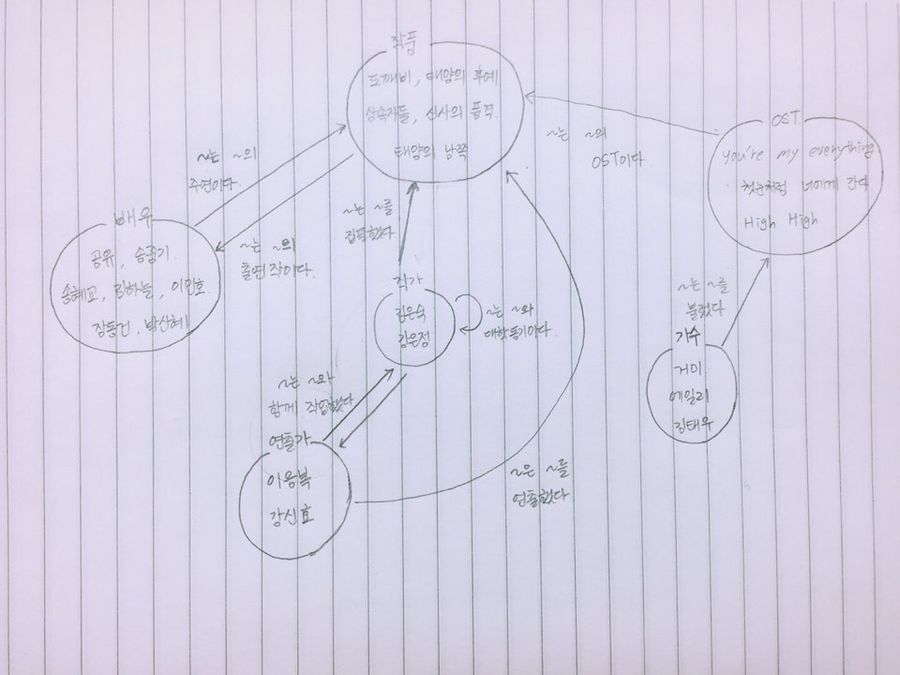 작품
도깨비, 태양의 후예
상속자들, 신사의 품격.
태양의 남쪽
~는 ~의
주연이다.
~는 ~의
출연작이다.
배우
공유, 송중기.
송혜교, 김하늘, 이민호
장동건, 박신혜
~는 ~를
집필했다
작가
김은숙
김은정
~는 ~와
대학동기이다.
~는 ~와
함께 작업했다
연출가
이응복
강신효
~은 ~를
연출했다
~는 ~의
OST이다.
OST
you're my everything
첫눈처럼 너에게 간다
High High
~는 ~를
불렀다
가수
거미
에일리
김태우